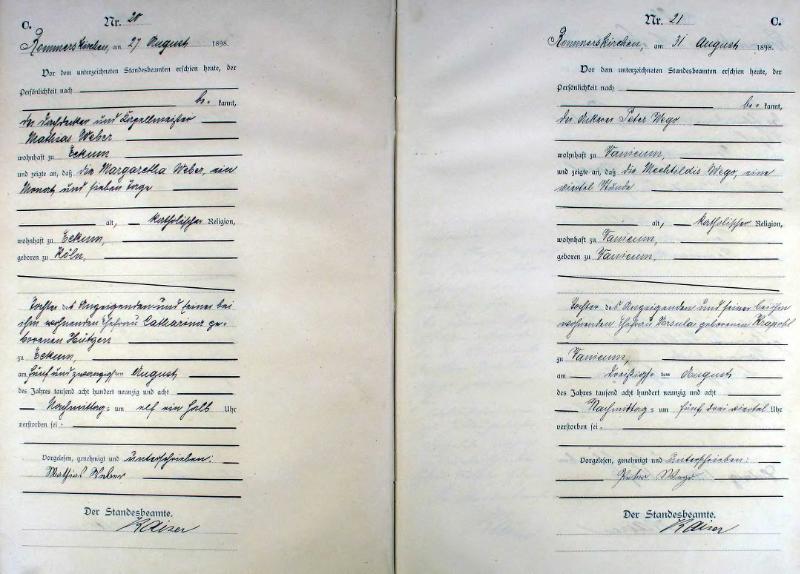 C.
Nr. 20
Rommerskirchen, am 27 August 1898.
Vor dem unterzeichneten Standesbeamten erschien heute, der
Persönlichkeit nach
be- kannt,
der Dachdecker und
Mathias Weber
wohnhaft zu Eckum
und zeigte an, daß die Margaretha Weber, ein
Monat und sieben Tage
alt, katholischer Religion,
wohnhaft zu Eckum,
geboren zu Köln,
Tochter des Anzeigenden und seiner bei
ihm wohnenden Ehefrau Catharina ge-
borenen Hütgen
zu Eckum,
am fünf und zwanzigsten August
des Jahres tausend acht hundert neunzig und acht
Nachmittags um elf ein halb Uhr
verstorben sei.
Vorgelesen, genehmigt und unterschrieben:
Mathias Weber
Der Standesbeamte.
Kaiser
Nr. 21
C.
Rommerskirchen, am 31 August 1898.
Vor dem unterzeichneten Standesbeamten erschien heute, der
Persönlichkeit nach
be- kannt,
der Ackerer Peter Wego
wohnhaft zu Vanicum,
und zeigte an, daß die Mechtildis Wego, eine
viertel Stunde
alt, katholischer Religion,
wohnhaft zu Vanicum,
geboren zu Vanicum,
Tochter des Anzeigenden und seiner bei ihm
wohnenden Ehefrau Ursula geborenen
zu Vanicum,
am dreißigsten August
des Jahres tausend acht hundert neunzig und acht
Nachmittags um fünf drei viertel Uhr
verstorben sei.
Vorgelesen, genehmigt und unterschrieben:
Peter Wego
Der Standesbeamte.
Kaiser